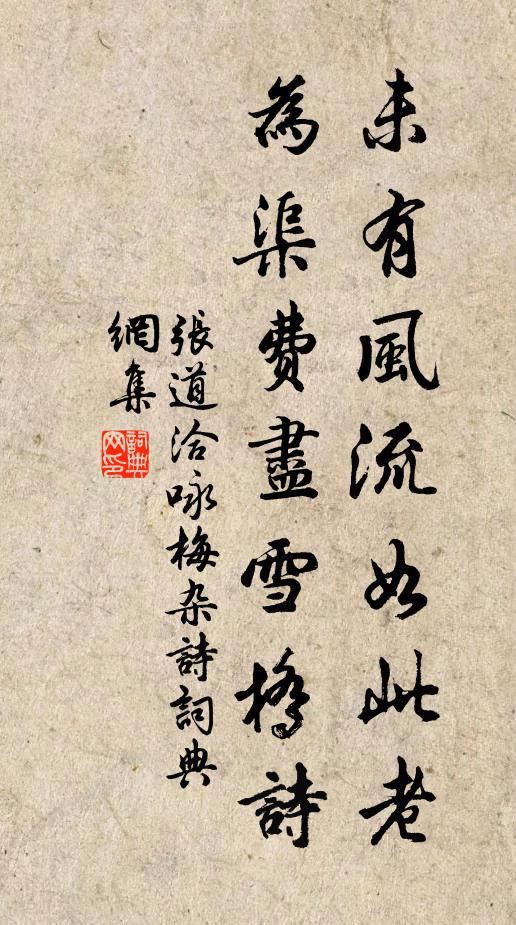 未有風流如此老
為渠費盡雪橋詩
張道洽咏梅杂詩詞典
網集
詞典
网印